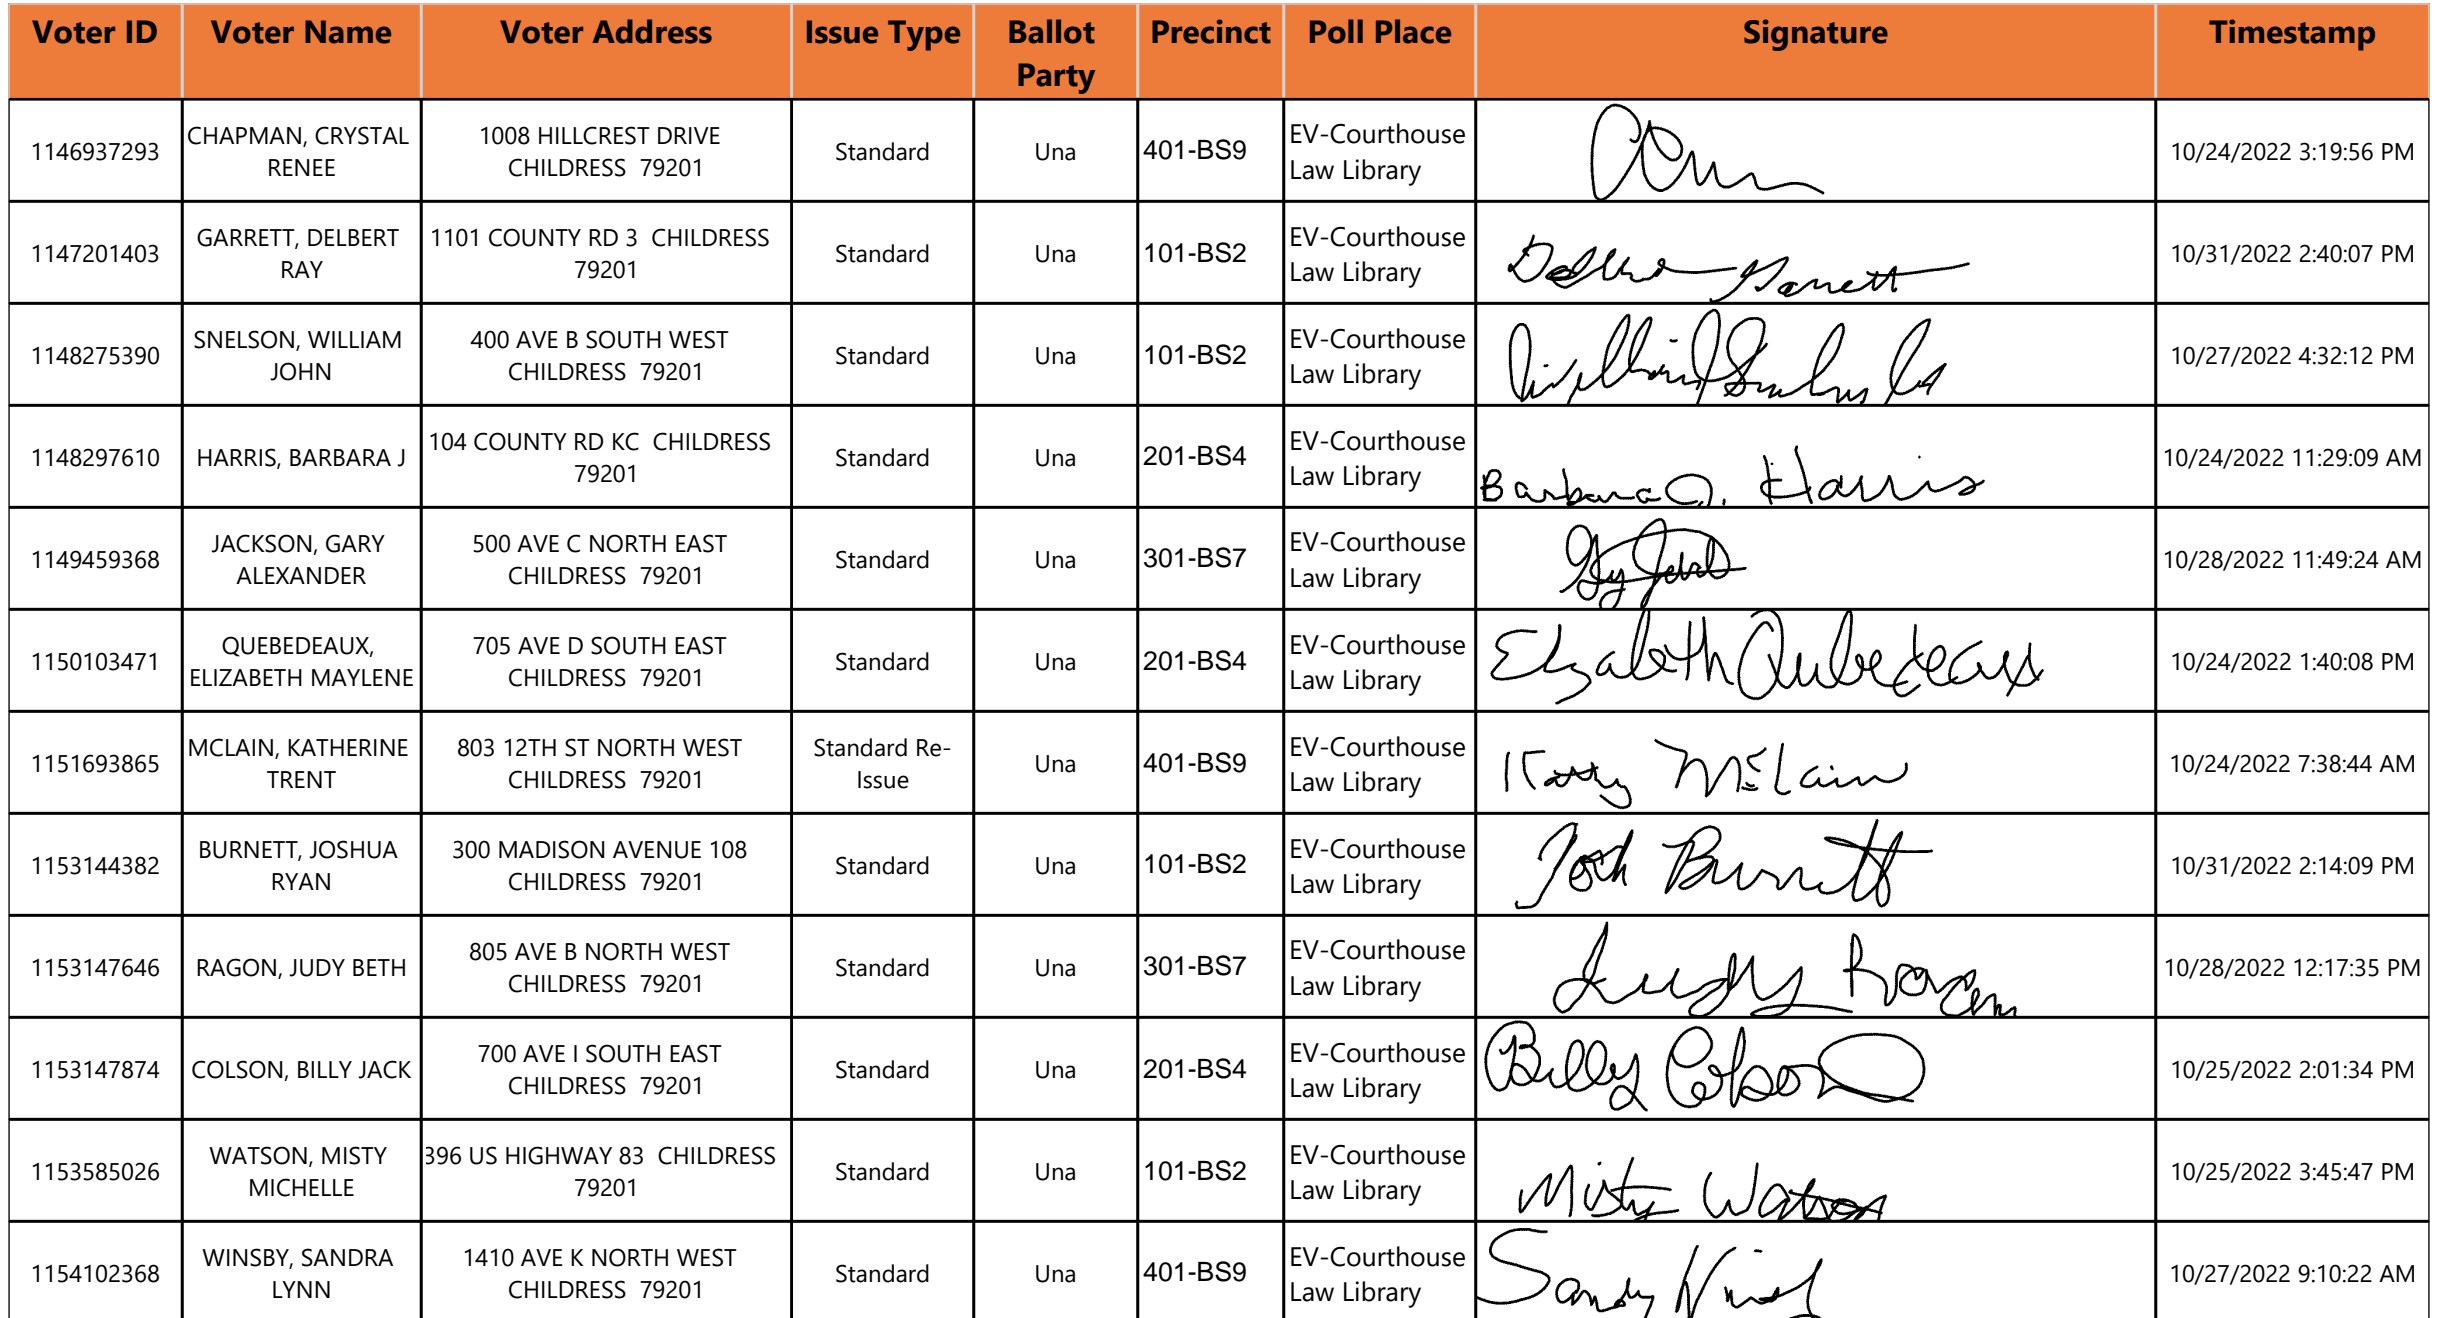 Voter ID Voter Name Voter Address Issue Type Ballot Party Precinct Poll Place Signature Timestamp
1146937293 CHAPMAN, CRYSTAL RENEE 1008 HILLCREST DRIVE CHILDRESS 79201 Standard Una 401-BS9 EV-Courthouse Law Library 10/24/2022 3:19:56 PM
1147201403 GARRETT, DELBERT RAY 1101 COUNTY RD 3 CHILDRESS 79201 Standard Una 101-BS2 EV-Courthouse Law Library Garrett 10/31/2022 2:40:07 PM
1148275390 SNELSON, WILLIAM JOHN 400 AVE B SOUTH WEST CHILDRESS 79201 Standard Una 101-BS2 EV-Courthouse Law Library 10/27/2022 4:32:12 PM
1148297610 HARRIS, BARBARA J 104 COUNTY RD KC CHILDRESS 79201 Standard Una 201-BS4 EV-Courthouse Law Library Barbara J. Harris 10/24/2022 11:29:09 AM
1149459368 JACKSON, GARY ALEXANDER 500 AVE C NORTH EAST CHILDRESS 79201 Standard Una 301-BS7 EV-Courthouse Law Library 10/28/2022 11:49:24 AM
1150103471 QUEBEDEAUX, ELIZABETH MAYLENE 705 AVE D SOUTH EAST CHILDRESS 79201 Standard Una 201-BS4 EV-Courthouse Law Library Elizabeth Quebedeaux 10/24/2022 1:40:08 PM
1151693865 MCLAIN, KATHERINE TRENT 803 12TH ST NORTH WEST CHILDRESS 79201 Standard Re-Issue Una 401-BS9 EV-Courthouse Law Library Katy McLain 10/24/2022 7:38:44 AM
1153144382 BURNETT, JOSHUA RYAN 300 MADISON AVENUE 108 CHILDRESS 79201 Standard Una 101-BS2 EV-Courthouse Law Library Josh Burnett 10/31/2022 2:14:09 PM
1153147646 RAGON, JUDY BETH 805 AVE B NORTH WEST CHILDRESS 79201 Standard Una 301-BS7 EV-Courthouse Law Library Judy Ragon 10/28/2022 12:17:35 PM
1153147874 COLSON, BILLY JACK 700 AVE I SOUTH EAST CHILDRESS 79201 Standard Una 201-BS4 EV-Courthouse Law Library Billy Colson 10/25/2022 2:01:34 PM
1153585026 WATSON, MISTY MICHELLE 396 US HIGHWAY 83 CHILDRESS 79201 Standard Una 101-BS2 EV-Courthouse Law Library Misty Watson 10/25/2022 3:45:47 PM
1154102368 WINSBY, SANDRA LYNN 1410 AVE K NORTH WEST CHILDRESS 79201 Standard Una 401-BS9 EV-Courthouse Law Library Sandy 10/27/2022 9:10:22 AM